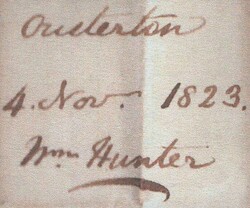 Ousterton
4. Nov. 1823.
Wm Hunter